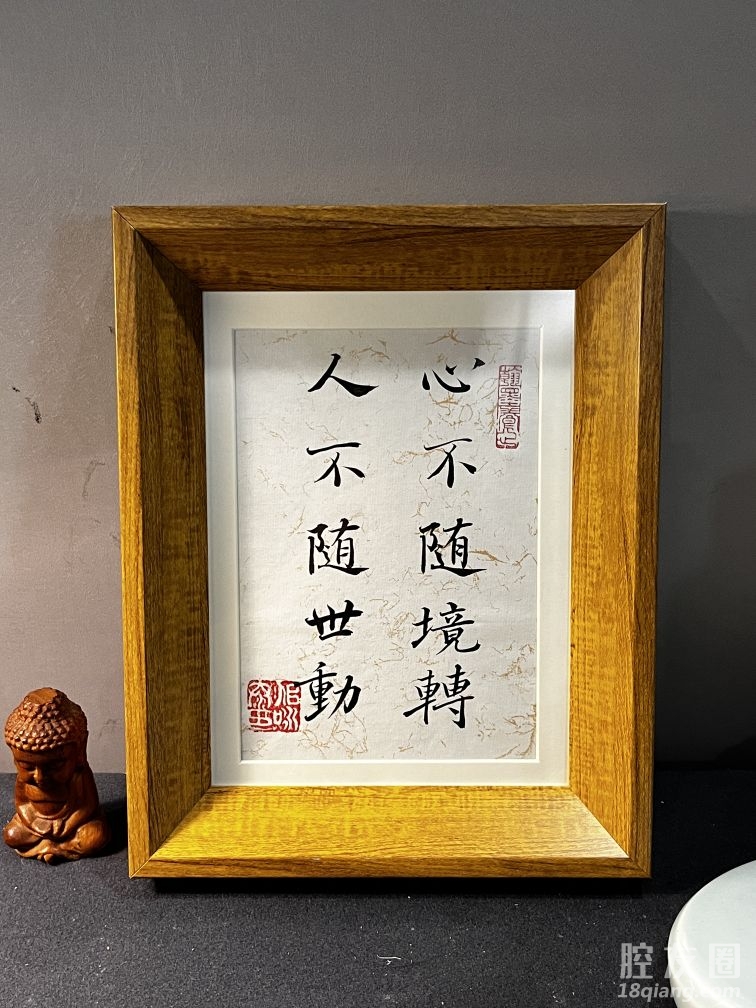 心不随境轉
人不随世動
腔友圈
18qiang.com